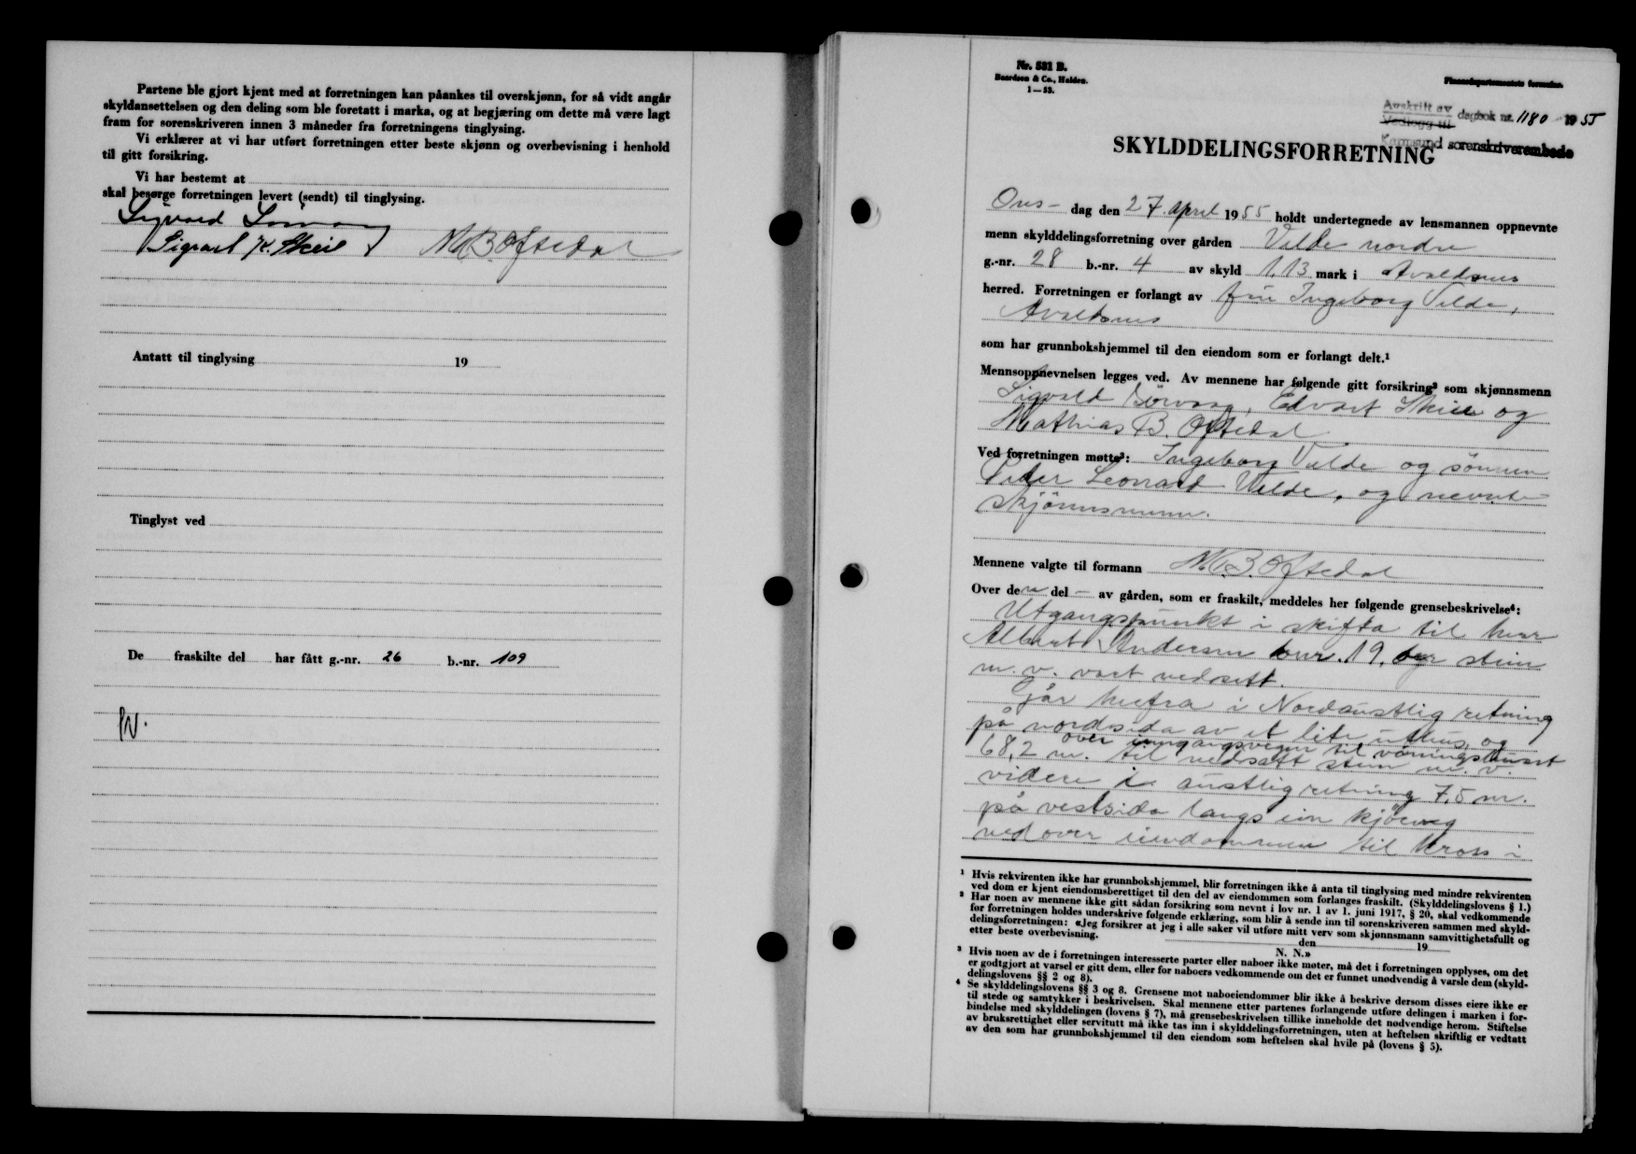 Partene ble gjort kjent med at forretningen kan påankes til overskjønn, for så vidt angår
skyldansettelsen og den deling som ble foretatt i marka, og at begjæring om dette må være lagt
fram for sorenskriveren innen 3 måneder fra forretningens tinglysing.
Vi erklærer at vi har utført forretningen etter beste skjønn og overbevisning i henhold
til gitt forsikring.
Vi har bestemt at
skal besørge forretningen levert (sendt) til tinglysing.
M B Oftedal
Antatt til tinglysing 19
Tinglyst ved
De fraskilte del har fått g.-nr. 26 b.-nr. 109
Nr. 531 B.
Baardsen & Co., Halden.
1—53.
Finansdepartementets formular.
Avskrift av
Vedlegg til dagbok nr. 1180 1955
Karmsund sorenskriverembede
SKYLDDELINGSFORRETNING
Ons- dag den 27. april 1955 holdt undertegnede av lensmannen oppnevnte
menn skylddelingsforretning over gården Velde nordre
g.-nr. 28 b.-nr. 4 av skyld 1,13 mark i Avaldsnes
herred. Forretningen er forlangt av fru Ingeborg Velde,
Avaldsnes
som har grunnbokshjemmel til den eiendom som er forlangt delt.¹
Mennsoppnevnelsen legges ved. Av mennene har følgende gitt forsikring² som skjønnsmenn
Sigvald Edvart Skeie og
Mathias B. Oftedal
Ved forretningen møtte³: Ingeborg Velde og sönnen
Peder Leonard Velde, og nevnte
skjönnsmenn.
Mennene valgte til formann M. B. Oftedal
Over den del — av gården, som er fraskilt, meddeles her følgende grensebeskrivelse⁴:
Utgangspunkt i skifta til
Albert Andersen bnr. 19, stein
m. v. vart nedsett.
Går herfra i Nordaustlig retning
på nordsida av et lite uthus, og
over inngangsvegen til våningshuset
68,2 m. til nedsatt stein m. v.
videre i austlig retning 7,5 m.
på vestsida langs ein kjöeveg
nedover eiendommen til kross i
¹ Hvis rekvirenten ikke har grunnbokshjemmel, blir forretningen ikke å anta til tinglysing med mindre rekvirenten
ved dom er kjent eiendomsberettiget til den del av eiendommen som forlanges fraskilt. (Skylddelingslovens § 1.)
² Har noen av mennene ikke gitt sådan forsikring som nevnt i lov nr. 1 av 1. juni 1917, § 20, skal vedkommende
før forretningen holdes underskrive følgende erklæring, som blir å sende inn til sorenskriveren sammen med skyld-
delingsforretningen: «Jeg forsikrer at jeg i alle saker vil utføre mitt verv som skjønnsmann samvittighetsfullt og
etter beste overbevisning. den 19
N. N.»
³ Hvis noen av de i forretningen interesserte parter eller naboer ikke møter, må det i forretningen opplyses, om det
er godtgjort at varsel er gitt dem, eller for naboers vedkommende om det er funnet unødvendig å varsle dem (skyld-
delingslovens §§ 2 og 8).
⁴ Se skylddelingslovens §§ 3 og 8. Grensene mot naboeiendommer blir ikke å beskrive dersom disses eiere ikke er
til stede og samtykker i beskrivelsen. Skal mennene etter partenes forlangende utføre delingen i marken i for-
bindelse med skylddelingen (lovens § 7), må grensebeskrivelsen tillike inneholde det nødvendige herom. Stiftelse
av bruksrettighet eller servitutt må ikke tas inn i skylddelingsforretningen, uten at heftelsen skriftlig er vedtatt
av den som har grunnbokshjemmel til den eiendom som heftelsen skal hvile på (lovens § 5).